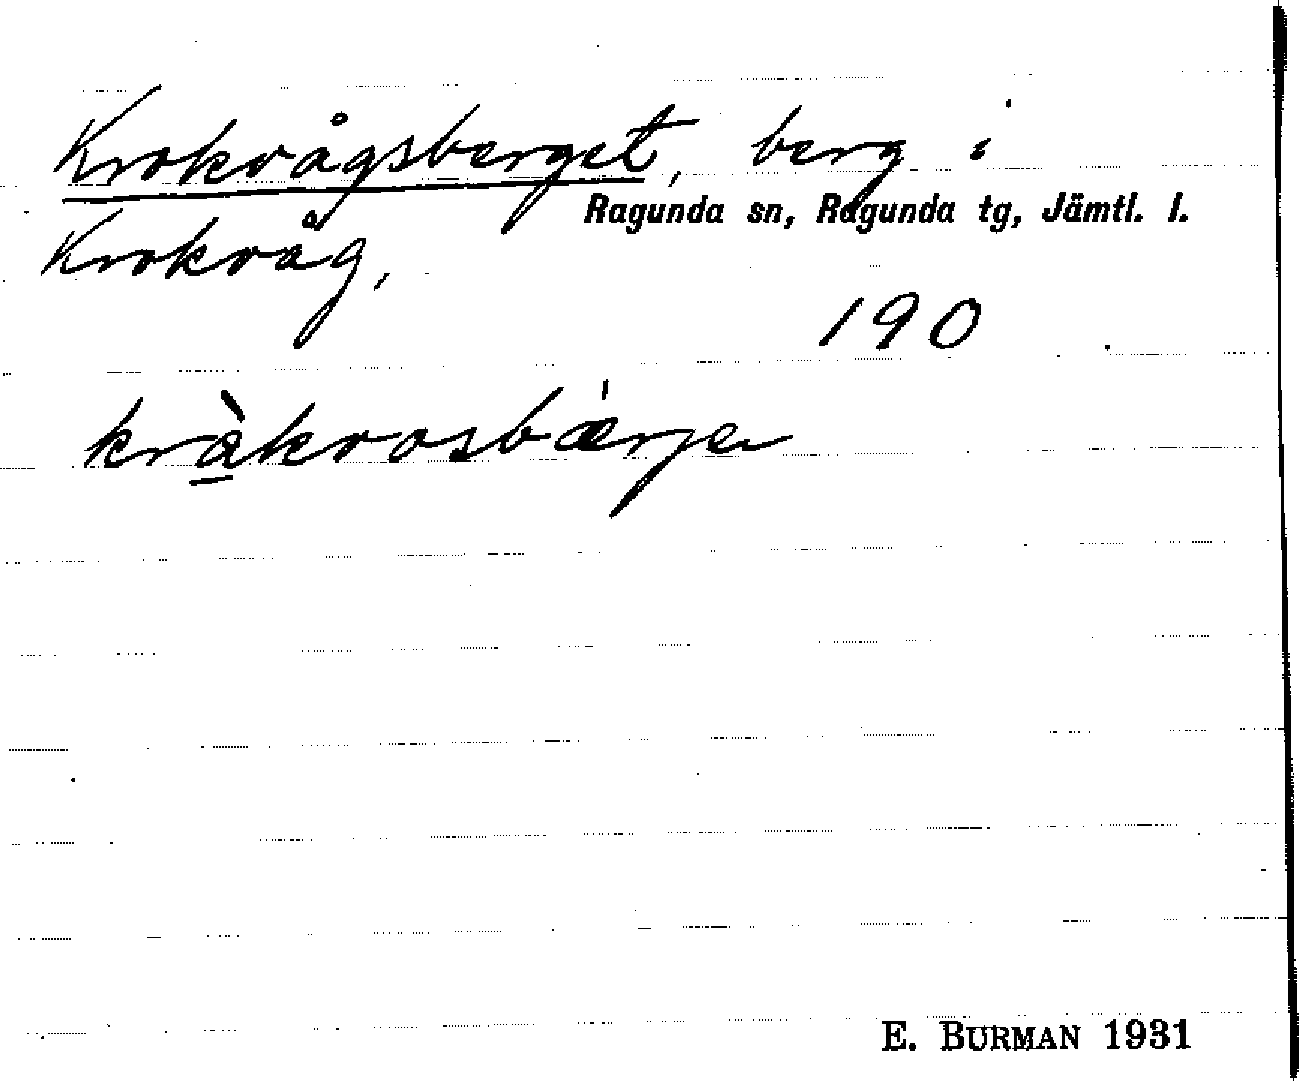 Krokvågsberget, berg i
Ragunda sn, Ragunda tg, Jämtl. l.
Krokvåg,
190
kràkvosbærjen
E. BURMAN 1931